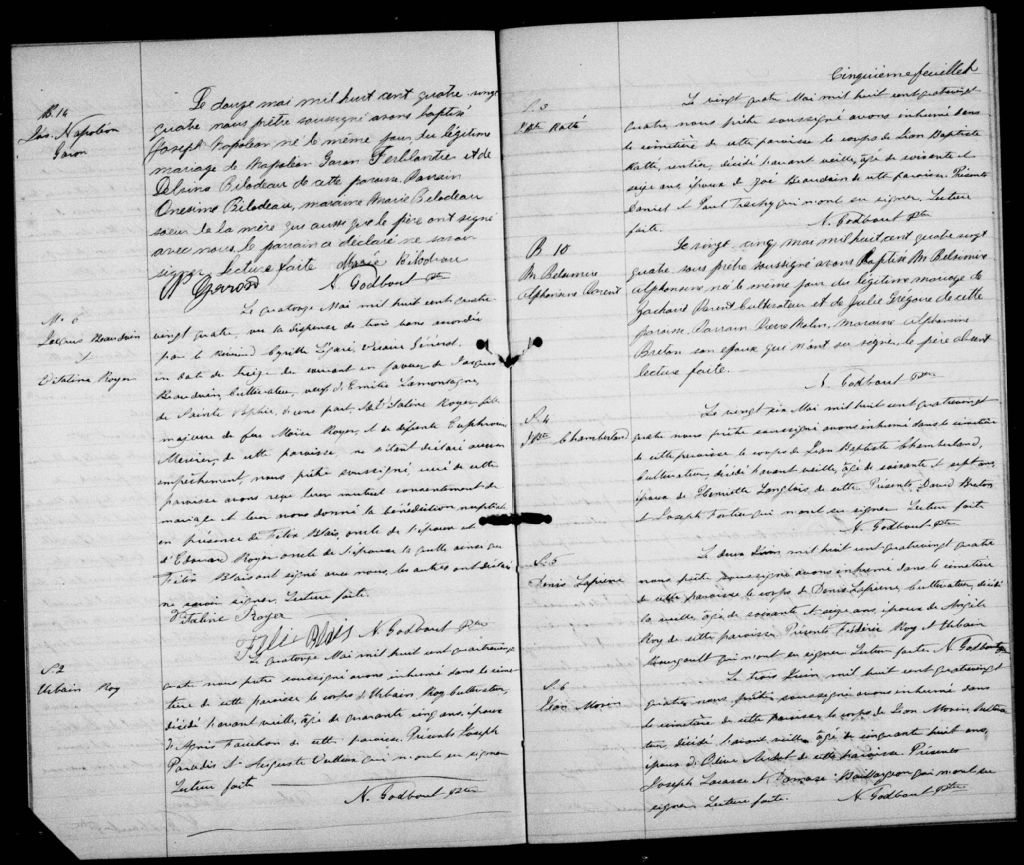 B. 14
Jos. Napoléon
Garon
Le douze mai mil huit cent quatre vingt
quatre nous prêtre soussigné avons baptisé
Joseph Napoléon né le même jour du légitime
mariage de Napoléon Garon Ferblantier et de
Delvina Bilodeau de cette paroisse. Parrain
Onesime Bilodeau, marraine Marie Bilodeau
soeur de la mère qui aussi que le père ont signé
avec nous, le parrain a déclaré ne savoir
signer. Lecture faite Marie Bilodeau
N. Garon N. Godbout Ptre
M. 6
Jacques Beaudoin
&
Vitaline Royer
Le quatorze Mai mil huit cent quatre
vingt quatre, vu la dispense de trois bans accordée
par le Révérend Cyrille Légaré, Vicaire Général,
en date du treize du courant en faveur de Jacques
Beaudoin, cultivateur, veuf d'Emilie Lamontagne,
de Sainte Sophie, d'une part, & Vitaline Royer, fille
majeure de feu Moïse Royer, et de défunte Euphrosine
Mercier, de cette paroisse, ne s'étant déclaré aucun
empêchement, nous prêtre soussigné curé de cette
paroisse avons reçu leur mutuel consentement de
mariage et leur avons donné la bénédiction nuptiale
en présence de Félix Blais oncle de l'époux et
d'Edouard Royer oncle de l'épouse laquelle ainsi que
Félix Blais ont signé avec nous, les autres ont déclaré
ne savoir signer. Lecture faite.
Vitaline Royer
Félix Blais N. Godbout Ptre
S. 2
Urbain Roy
Le quatorze Mai mil huit cent quatrevingt
quatre nous prêtre soussigné avons inhumé dans le cime-
tière de cette paroisse le corps d'Urbain Roy cultivateur,
décédé l'avant veille, âgé de quarante cinq ans, époux
d'Agnès Fauchon de cette paroisse. Présents Joseph
Paradis et Auguste qui n'ont su signer
Lecture faite
N. Godbout Ptre
Cinquième feuillet
S. 3
J. Bte Ratté
Le vingt quatre Mai mil huit cent quatrevingt
quatre, nous prêtre soussigné avons inhumé dans
le cimetière de cette paroisse le corps de Jean Baptiste
Ratté, rentier, décédé l'avant veille, âgé de soixante et
seize ans, époux de Zoé Beaudoin de cette paroisse. Présents
Daniel et Paul qui n'ont su signer. Lecture
faite. N. Godbout Ptre
B 10
M. Belzimire
Alphonsine Parent
Le vingt-cinq mai mil huit cent quatre vingt
quatre nous prêtre soussigné avons baptisé M. Belzimire
Alphonsine, née le même jour du légitime mariage de
Zacharie Parent Cultivateur et de Julie Grégoire de cette
paroisse. Parrain Pierre Morin, marraine Alphonsine
Breton son épouse qui n'ont su signer, le père absent
lecture faite.
N. Godbout Ptre
S. 4
J. Bte Chamberland
Le vingt six Mai mil huit cent quatrevingt
quatre nous prêtre soussigné avons inhumé dans le cimetière
de cette paroisse le corps de Jean Baptiste Chamberland,
Cultivateur, décédé l'avant veille, âgé de soixante et sept ans,
époux de Henriette Langlois de cette. Présents David Breton
et Joseph Fortier qui n'ont su signer. Lecture faite
N. Godbout Ptre
S. 5
Denis Lapierre
Le deux Juin mil huit cent quatrevingt quatre
nous prêtre soussigné avons inhumé dans le cimetière
de cette paroisse le corps de Denis Lapierre, Cultivateur, décédé
la veille, âgé de soixante et seize ans, époux de Angèle
Roy de cette paroisse. Présents Frédéric Roy et Urbain
qui n'ont su signer. Lecture faite. N. Godbout Ptre
S. 6
Léon Morin
Le trois Juin mil huit cent quatrevingt
quatre, nous prêtre soussigné avons inhumé dans
le cimetière de cette paroisse le corps de Léon Morin, cultiva-
teur, décédé l'avant veille âgé de cinquante huit ans,
époux d'Olive de cette paroisse. Présents
Joseph Lacasse et Damase Baillargeon qui n'ont su
signer. Lecture faite. N. Godbout Ptre